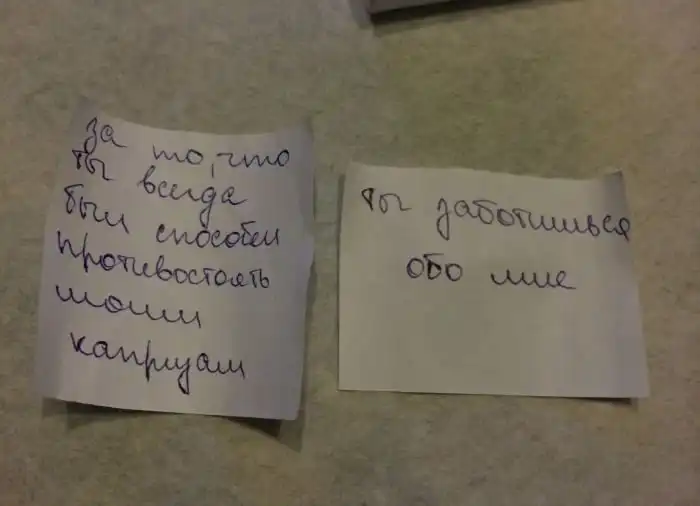 За то, что
ты всегда
был способен
противостоять
моим
капризам
ты заботишься
обо мне